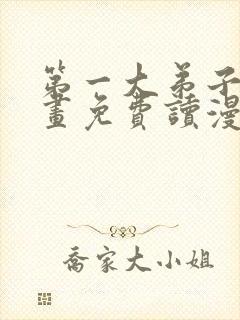 第一大弟子漫
畫免費讀漫
喬家大小姐